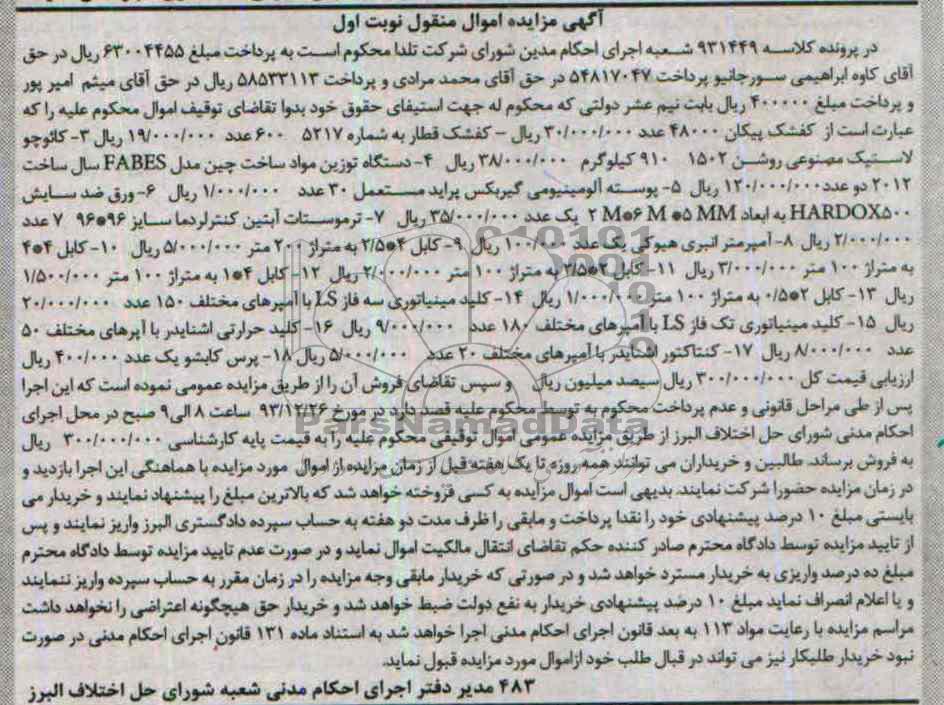 آگهی مزایده اموال منقول نوبت اول
در پرونده کلاسه ۹۳۱۴۴۹ شعبه اجرای احکام مدین شورای شرکت تلدا محکوم است به پرداخت مبلغ ۶۳۰۰۴۴۵۵ ریال در حق
آقای کاوه ابراهیمی سورجانیو پرداخت ۵۴۸۱۷۰۴۷ در حق آقای محمد مرادی و پرداخت ۵۸۵۳۳۱۱۳ ریال در حق آقای میثم امیر پور
و پرداخت مبلغ ۴۰۰۰۰۰ ریال بابت نیم عشر دولتی که محکوم له جهت استیفای حقوق خود بدوا تقاضای توقیف اموال محکوم علیه را که
عبارت است از کفشک پیکان ۴۸۰۰۰ عدد ۳۰/۰۰۰/۰۰۰ ریال – کفشک قطار به شماره ۵۲۱۷ ۶۰۰ عدد ۱۹/۰۰۰/۰۰۰ ریال ۳- کائوچو
لاستیک مصنوعی روشن ۱۵۰۲ ۹۱۰ کیلوگرم ۳۸/۰۰۰/۰۰۰ ریال ۴- دستگاه توزین مواد ساخت چین مدل FABES سال ساخت
۲۰۱۲ دو عدد ۱۲۰/۰۰۰/۰۰۰ ریال ۵- پوسته آلومینیومی گیربکس پراید مستعمل ۳۰ عدد ۱/۰۰۰/۰۰۰ ریال ۶- ورق ضد سایش
HARDOX۵۰۰ به ابعاد ۲ M*۶ M *۵ MM یک عدد ۳۵/۰۰۰/۰۰۰ ریال ۷- ترموستات آبتین کنترلردما سایز ۹۶*۹۶ ۷ عدد
۲/۰۰۰/۰۰۰ ریال ۸- آمپرمتر انبری هیوکی یک عدد ۱۰۰/۰۰۰ ریال ۹- کابل ۴*۲/۵ به متراژ ۲۰۰ متر ۵/۰۰۰/۰۰۰ ریال ۱۰- کابل ۴*۴
به متراژ ۱۰۰ متر ۳/۰۰۰/۰۰۰ ریال ۱۱- کابل ۲*۲/۵ به متراژ ۱۰۰ متر ۲/۰۰۰/۰۰۰ ریال ۱۲- کابل ۴*۱ به متراژ ۱۰۰ متر ۱/۵۰۰/۰۰۰
ریال ۱۳- کابل ۲*۰/۵ به متراژ ۱۰۰ متر ۱/۰۰۰/۰۰۰ ریال ۱۴- کلید مینیاتوری سه فاز LS با آمپرهای مختلف ۱۵۰ عدد ۲۰/۰۰۰/۰۰۰
ریال ۱۵- کلید مینیاتوری تک فاز LS با آمپرهای مختلف ۱۸۰ عدد ۹/۰۰۰/۰۰۰ ریال ۱۶- کلید حرارتی اشنایدر با آپرهای مختلف ۵۰
عدد ۸/۰۰۰/۰۰۰ ریال ۱۷- کنتاکتور اشنایدر با آمپرهای مختلف ۲۰ عدد ۵/۰۰۰/۰۰۰ ریال ۱۸- پرس کابشو یک عدد ۴۰۰/۰۰۰ ریال
ارزیابی قیمت کل ۳۰۰/۰۰۰/۰۰۰ ریال سیصد میلیون ریال و سپس تقاضای فروش آن را از طریق مزایده عمومی نموده است که این اجرا
پس از طی مراحل قانونی و عدم پرداخت محکوم به توسط محکوم علیه قصد دارد در مورخ ۹۳/۱۲/۲۶ ساعت ۸ الی۹ صبح در محل اجرای
احکام مدنی شورای حل اختلاف البرز از طریق مزایده عمومی اموال توقیفی محکوم علیه را به قیمت پایه کارشناسی ۳۰۰/۰۰۰/۰۰۰ ریال
به فروش برساند. طالبین و خریداران می توانند همه روزه تا یک هفته قبل از زمان مزایده از اموال مورد مزایده با هماهنگی این اجرا بازدید و
در زمان مزایده حضورا شرکت نمایند. بدیهی است اموال مزایده به کسی فروخته خواهد شد که بالاترین مبلغ را پیشنهاد نمایند و خریدار می
بایستی مبلغ ۱۰ درصد پیشنهادی خود را نقدا پرداخت و مابقی را ظرف مدت دو هفته به حساب سپرده دادگستری البرز واریز نمایند و پس
از تایید مزایده توسط دادگاه محترم صادر کننده حکم تقاضای انتقال مالکیت اموال نماید و در صورت عدم تایید مزایده توسط دادگاه محترم
مبلغ ده درصد واریزی به خریدار مسترد خواهد شد و در صورتی که خریدار مابقی وجه مزایده را در زمان مقرر به حساب سپرده واریز ننمایند
و یا اعلام انصراف نماید مبلغ ۱۰ درصد پیشنهادی خریدار به نفع دولت ضبط خواهد شد و خریدار حق هیچگونه اعتراضی را نخواهد داشت
مراسم مزایده با رعایت مواد ۱۱۳ به بعد قانون اجرای احکام مدنی اجرا خواهد شد به استناد ماده ۱۳۱ قانون اجرای احکام مدنی در صورت
نبود خریدار طلبکار نیز می تواند در قبال طلب خود ازاموال مورد مزایده قبول نماید.
۴۸۳ مدیر دفتر اجرای احکام مدنی شعبه شورای حل اختلاف البرز
ParsNamadData